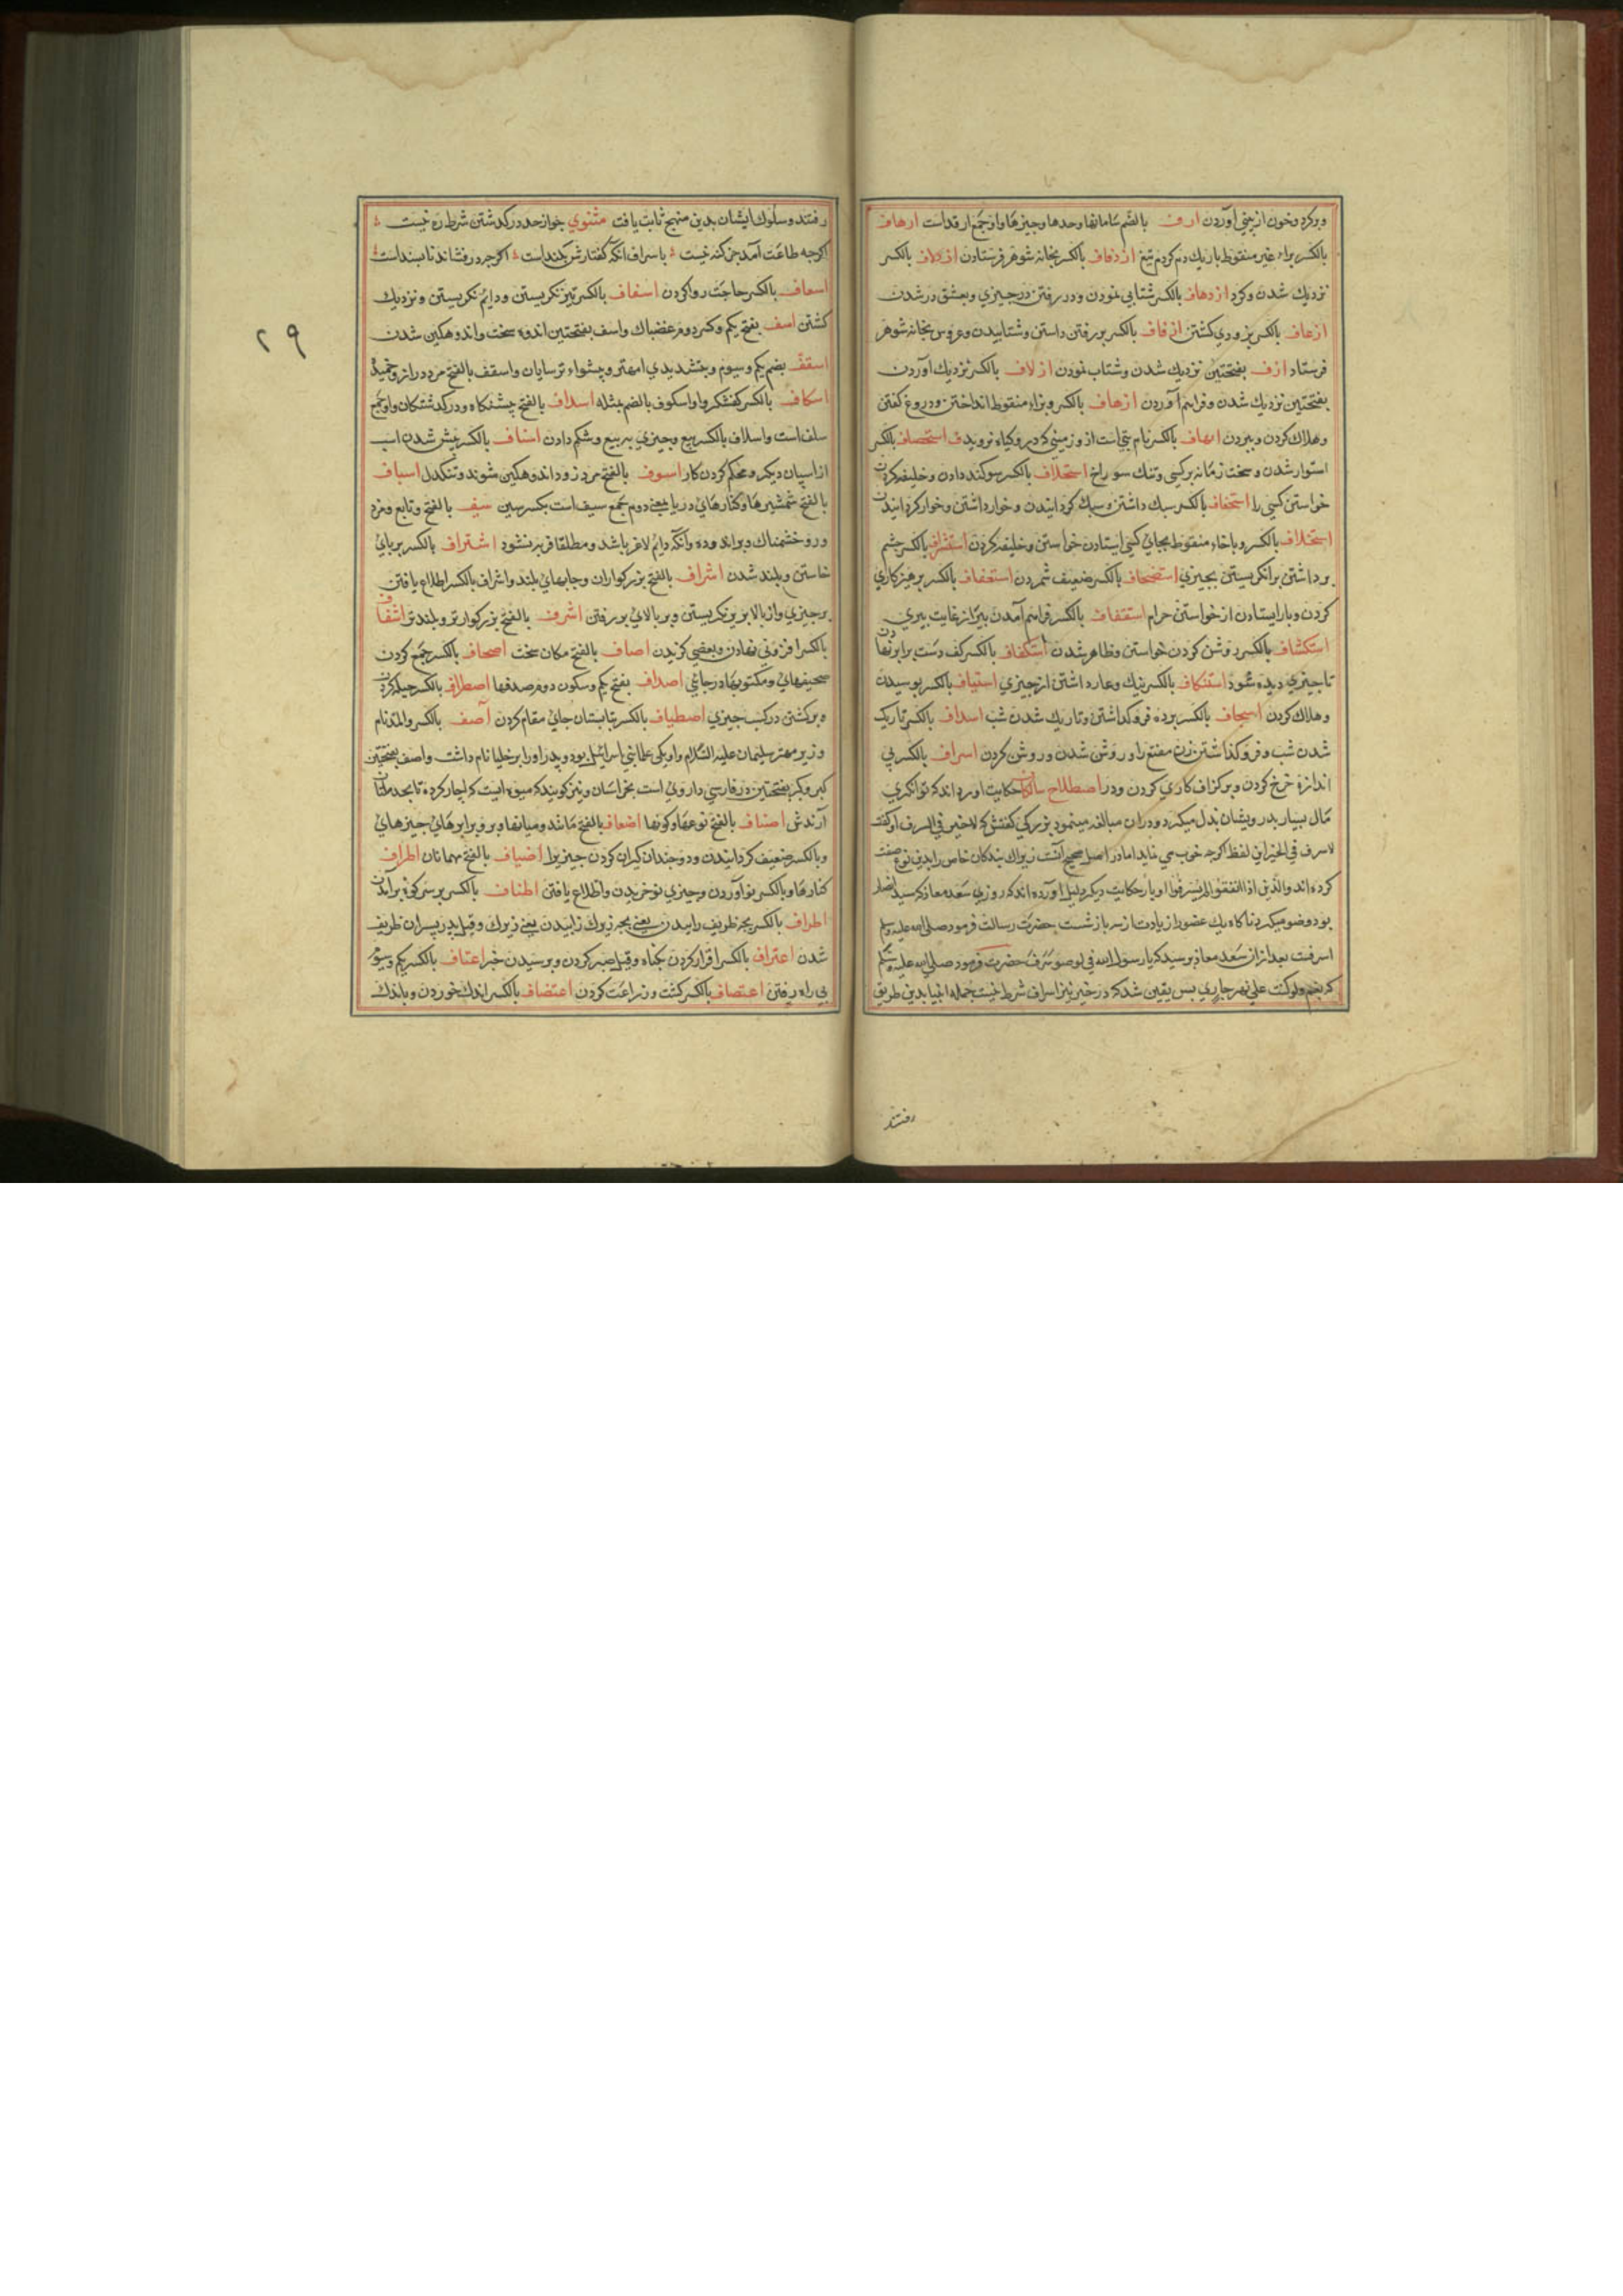 وبرکردن خون از بینی آوردن ارف بالضم سامانها وحدها وچیزها واو جمع ارفه است ارهاف
بالکسر براء غیر منقوط باریك دم کردن تیغ ازدفاف بالکسر بخانه شوهر فرستادن ازدلاف بالکسر
نزدیك شدن وکرد ازدهاف بالکسر شتابی نمودن ودر رفتن در چیزی وبعشق در شدن
ازعاف بالکسر بزودی کشتن ازفاف بالکسر بر رفتن داشتن وشتابیدن وعروس بخانه شوهر
فرستاد ازف بفتحتین نزدیك شدن وشتاب نمودن ازلاف بالکسر نزدیك آوردن
بفتحتین نزدیك شدن وفراهم آوردن ازهاف بالکسر وبزاء منقوط انداختن ودروغ کفتن
وهلاك کردن وبردن ایهاف بالکسر نام بتی است از وزمینی که درو کیاه نروید استحصاف بالکسر
استوار شدن وسخت زمانه بر کسی وتنك سوراخ استحلاف بالکسر سوکند دادن وخلیفه کردن
خواستن کسی را استخفاف بالکسر سبك داشتن وسبك کردانیدن وخوار داشتن وخوار کردانیدن
استخلاف بالکسر وباخاء منقوط بجای کسی ایستادن خواستن وخلیفه کردن استشراف بالکسر چشم
برداشتن برانکریستن بچیزی استضعاف بالکسر ضعیف شمردن استعفاف بالکسر پرهیزکاری
کردن وبازایستادن از خواستن حرام استقفاف بالکسر فراهم آمدن پیر از غایت پیری
استکشاف بالکسر روشن کردن خواستن وظاهر شدن استکفاف بالکسر کف دست برابر نهادن
تا چیزی دیده شود استنکاف بالکسر ننك وعار داشتن از چیزی استیاف بالکسر بوسیدن
وهلاك کردن اسجاف بالکسر پرده فروکذاشتن وتاریك شدن شب اسداف بالکسر تاریك
شدن شب وفروکذاشتن زن مقنع را وروشن شدن وروشن کردن اسراف بالکسر بی
اندازه خرج کردن وبر کزاف کاری کردن ودر اصطلاح سالکان حکایت آورده اند که توانکری
مال بسیار بدرویشان بذل میکرد ودران مبالغه مینمود بزرکی کفتش که لا خیر فی السرف او کفت
لا سرف فی الخیر این لفظ اکرچه خوب می نماید اما در اصل صحیح آنست زیراك بندکان خاص را بدین نوع صفت
کرده اند والذین اذا انفقوا لم یسرفوا او باز حکایت دیکر دلیل آورده اند که روزی سعد معاذ که سید انصار
بود وضو میکرد ناکاه یك عضو را زیادت از سه بار شست حضرت رسالت فرمود صلی الله علیه وسلم
اسرفت بعد ازان سعد معاذ پرسید که یا رسول الله فی الوضو سرف حضرت فرمود صلی الله علیه وسلم
که نعم ولو کنت علی نهر جاری پس یقین شد که در خیر نیز اسراف شرط نیست جمله انبیا بدین طریق
رفتند
رفتند وسلوك ایشان بدین منهج ثابت یافت مثنوی جواز حد در کذشتن شرط ره نیست
اکرچه طاعت آمد جز کنه نیست باسراف انکه کفتارش بلند است اکرچه در فشاند ناپسند است
اسعاف بالکسر حاجت روا کردن اسفاف بالکسر تیز نکریستن ودائم نکریستن ونزدیك
کشتن اسف بفتح یکم وکسر دوم غضبناك واسف بفتحتین اندوه سخت واندوهکین شدن
اسقف بضم یکم وسیوم وبتشدید یا مهتر وپیشواء ترسایان واسقف بالفتح مرد دراز وخمیده
اسکاف بالکسر کفشکر واواسکوف بالضم مثله اسلاف بالفتح پیشینکان ودرکذشتکان واو جمع
سلف است واسلاف بالکسر بیع وچیزی به بیع وشکم دادن اسناف بالکسر پیش شدن اسب
از اسپان دیکر ومحکم کردن کار اسوف بالفتح مرد زود اندوهکین شوند وتنکدل اسیاف
بالفتح شمشیرها وکنارهای دریا یعنی دوم جمع سیف است بکسر سین سیف بالفتح وتابع ومزد
ور وخشمناك وبر اندوده وآنکه دائم لاغر باشد ومطلقا فربه نشود اشتراف بالکسر بر پای
خاستن وبلند شدن اشراف بالفتح بزرکواران وجایهای بلند واشراف بالکسر اطلاع یافتن
بر چیزی واز بالا بزیر نکریستن وبر بالای بر رفتن اشرف بالفتح بزرکوارتر وبلندتر اشفاف
بالکسر افزونی نهادن وبعضی کزیدن اصاف بالفتح مکان سخت اصحاف بالکسر جمع کردن
صحیفهای ومکتوبها در جائی اصداف بفتح یکم وسکون دوم صدفها اصطراف بالکسر حیله کردن
وبرکشتن در کسب چیزی اصطیاف بالکسر بتابستان جائی مقام کردن آصف بالکسر والمد نام
وزیر مهتر سلیمان علیه السلام واو یکی علما بنی اسرائیل بود وپدر او را برخلیا نام داشت واصف بفتحتین
کبر وکبر بفتحتین در فارسی داروئی است بخراسان ونیز کویند که میوه ایست که اچار کرده تا بحد ملتان
آرندش اصناف بالفتح نوعها وکونها اضعاف بالفتح مانند ومیانها وبر وبرابرهای چیزهای
وبالکسر ضعیف کردانیدن ودو چندان کیران کردن چیز را اضیاف بالفتح مهمانان اطراف
کنارها وبالکسر نو آوردن وچیزی نو خریدن واطلاع یافتن اطناف بالکسر بر سر کوه برآمدن
اظراف بالکسر بچه ظریف زاییدن یعنی بچه زیرك زاییدن یعنی زیرك وقیل پدر پسران ظریف
شدن اعتراف بالکسر اقرار کردن بکناه وقیل صبر کردن وپرسیدن خبر اعتساف بالکسر یکم وسیوم
بی راه رفتن اعتصاف بالکسر کشت وزراعت کردن اعتضاف بالکسر اندك خوردن وباندك
۲۹